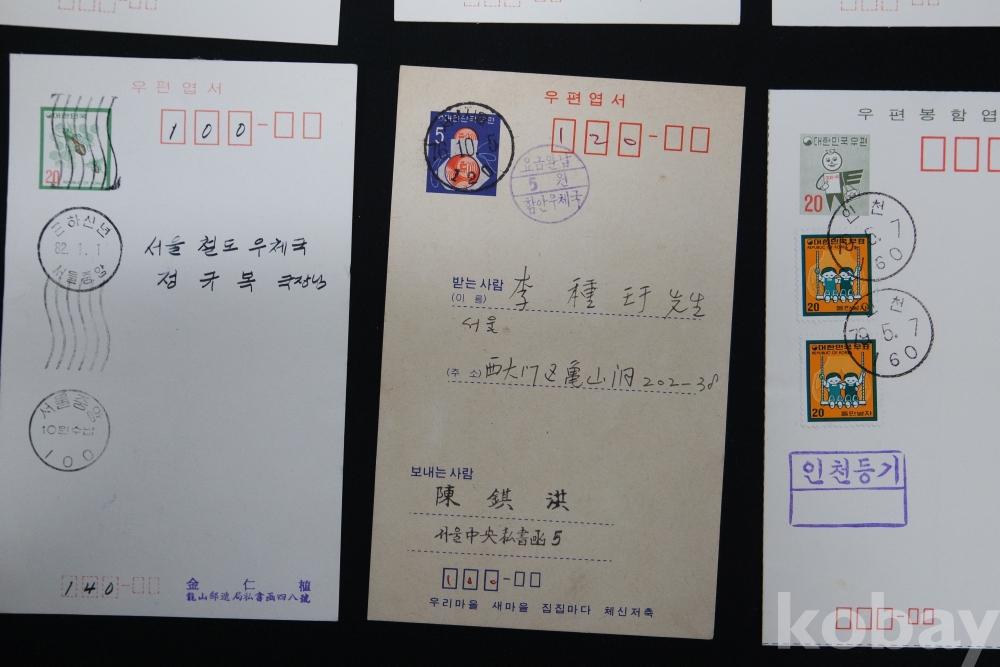 우편엽서
20
100-
근하신년
82.1.1
서울중앙
서울 철도 우체국
정규복 국장님
서울중앙
10원수납
100
140-
金仁植
龍山郵逓局私書函四八號
우편엽서
5 대한민국우편
120-
10.5
요금완납
5원
함안우체국
받는사람
(이름) 李種玗 先生
서울
(주소) 西大门区龜山洞 202-38
보내는사람
陳鎭洪
서울中央私書函5
100-
우리마을 새마을 집집마다 체신저축
우편봉함엽
대한민국우편
20
인천
5.7
160
대한민국우표
REPUBLIC OF KOREA
20
인천
79.5.7
160
대한민국우표
REPUBLIC OF KOREA
20
인천등기
kobay